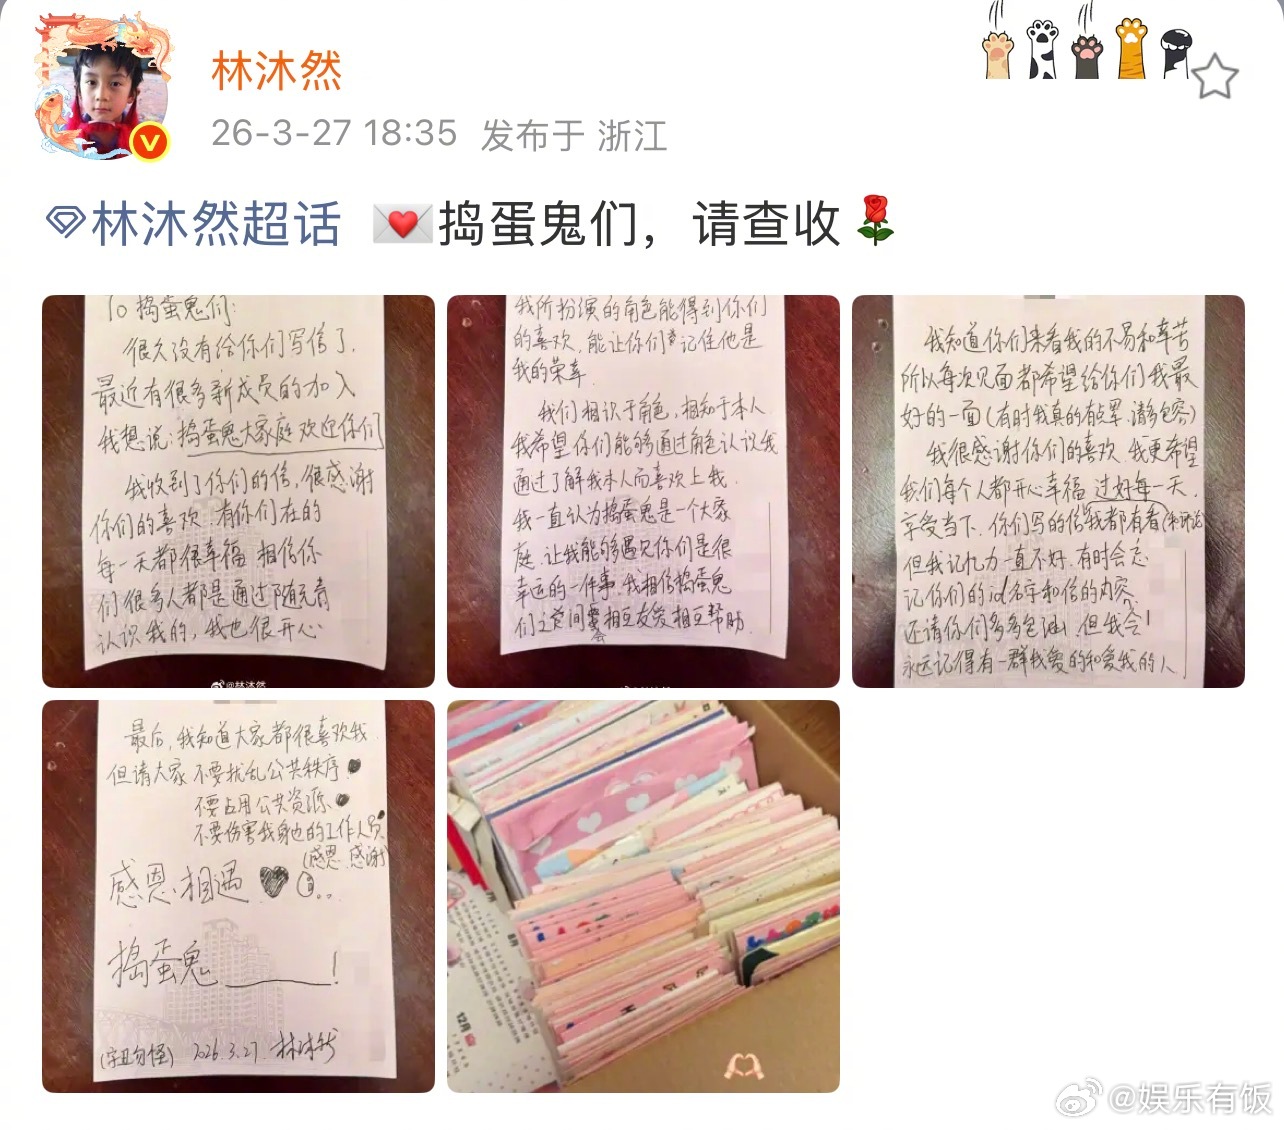 林沐然
26-3-27 18:35 发布于 浙江
林沐然超话 捣蛋鬼们，请查收
To 捣蛋鬼们:
很久没有给你们写信了,
最近有很多新成员的加入
我想说:捣蛋鬼大家庭欢迎你们
我收到了你们的信,很感谢
你们的喜欢,有你们在的
每一天都很幸福 相信你
们很多人都是通过随元青
认识我的,我也很开心
@林沐然
我所扮演的角色能得到你们
的喜欢,能让你们记住他是
我的荣幸
我们相识于角色,相知于本人
我希望你们能够通过角色认识我
通过了解我本人而喜欢上我.
我一直认为捣蛋鬼是一个大家
庭.让我能够遇见你们是很
幸运的一件事.我相信捣蛋鬼
们之间会相互友爱 相互帮助.
我知道你们来看我的不易和辛苦
所以每次见面都希望给你们我最
好的一面(有时我真的有点累,请多包容)
我很感谢你们的喜欢.我更希望
我们每个人都开心幸福 过好每一天,
享受当下.你们写的信我都有看
但我记忆力一直不好,有时会忘
记你们的id名字和信的内容
还请你们多多包涵!但我会!
永远记得有一群我爱的和爱我的人
最后,我知道大家都很喜欢我.
但请大家 不要扰乱公共秩序
不要占用公共资源
不要伤害我身边的工作人员
(感恩 感谢)
感恩.相遇
捣蛋鬼 ______!
(字丑勿怪) 2026.3.27. 林沐然
8月
12月
@娱乐有饭